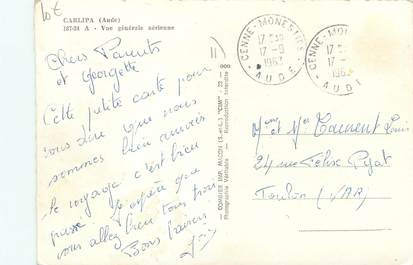 10€
CARLIPA (Aude)
187-24 A - Vue générale aérienne
Chers Parents
et Georgette
Cette petite carte pour
vous dire que nous
sommes bien arrivés
le voyage c'est bien
passé. J'espère que
vous allez bien tous trois
Bons baisers
COMBIER IMP. MACON (S.-et-L.) "CIM"
Photographie Véritable - Reproduction Interdite
CENNE-MONESTIES
17-9
1963
AUDE
CENNE-MO
17-
1963
AUDE
Mme et Mr Laurent Louis
24 rue Felix Pyat
Toulon (VAR)